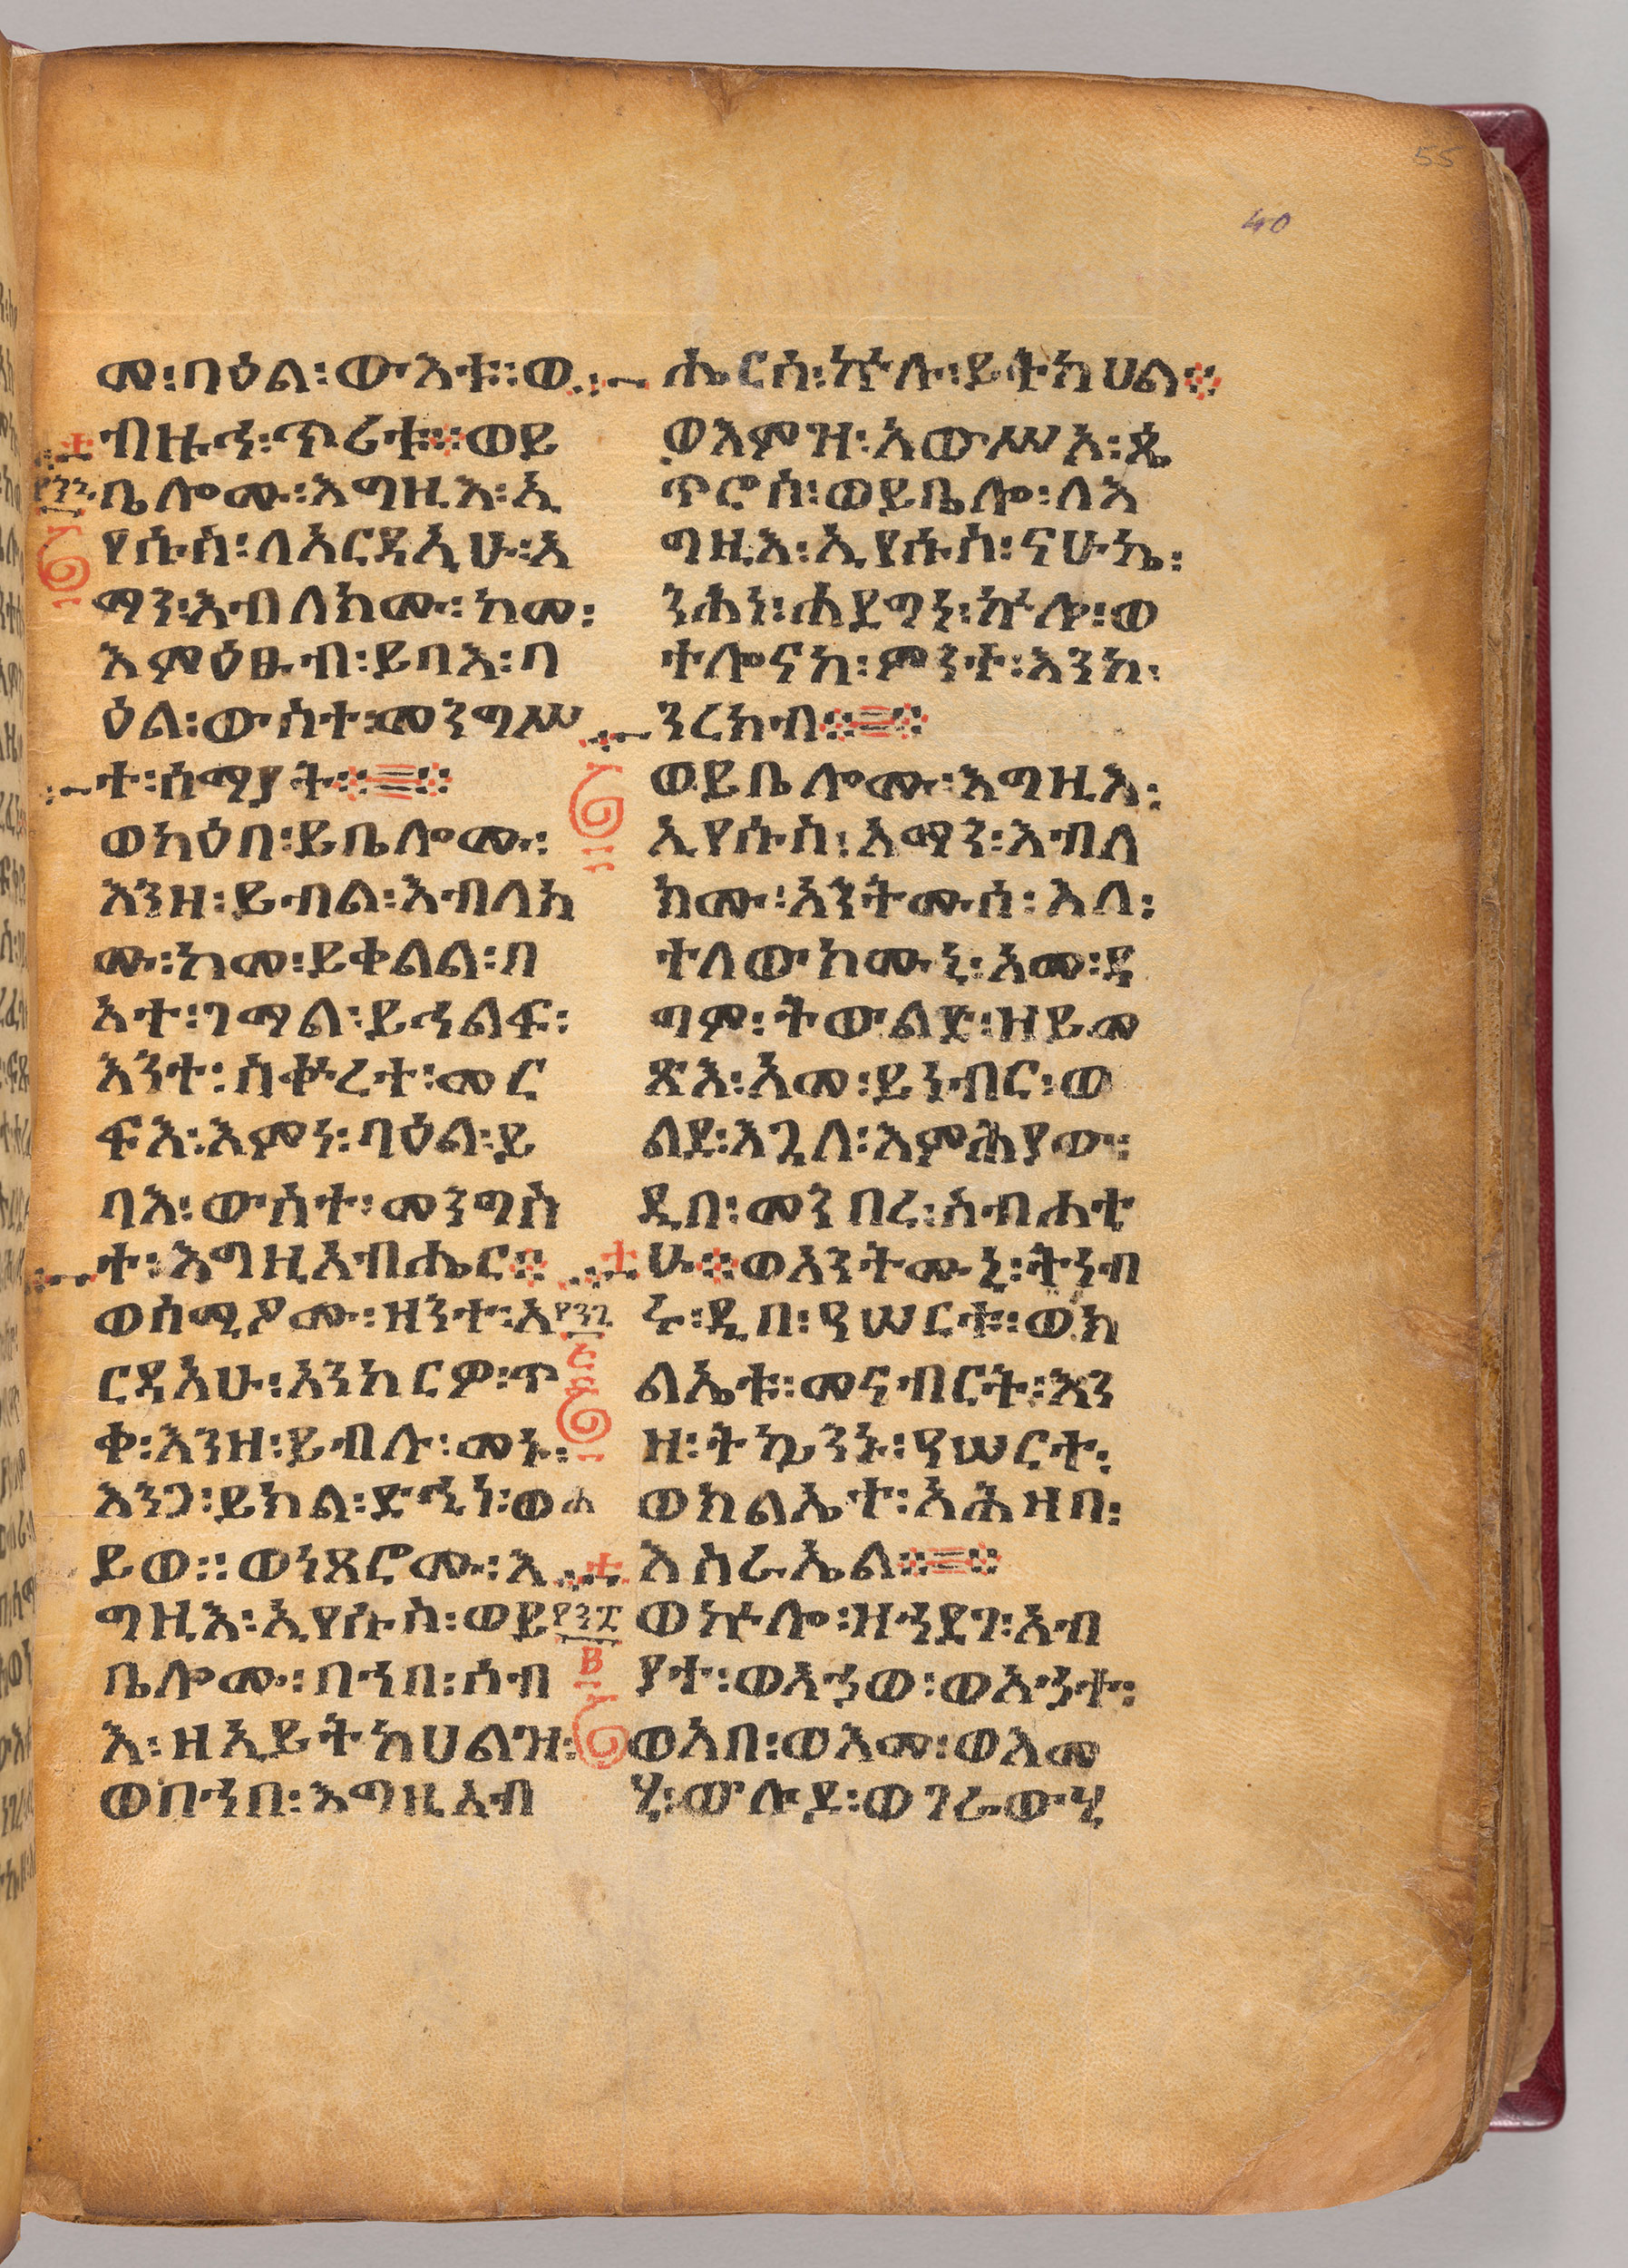 55
40
መ፡ባዕል፡ውእቱ፡ወ
ብዙኅ፡ጥሪቱ፡ወይ
ቤሎሙ፡እግዚእ፡ኢ
የሱስ፡ለአርዳኢሁ፡አ
ማን፡እብለክሙ፡ከመ፡
እምዕፁብ፡ይበእ፡ባ
ዕል፡ውስተ፡መንግሥ
ተ፡ሰማያት።
ወካዕበ፡ይቤሎሙ፡
እንዘ፡ይብል፡እብለክ
ሙ፡ከመ፡ይቀልል፡በ
አተ፡ገማል፡ይኅልፍ፡
እንተ፡ስቍረተ፡መር
ፍእ፡እምነ፡ባዕል፡ይ
ባእ፡ውስተ፡መንግስ
ተ፡እግዚአብሔር።
ወሰሚዖሙ፡ዘንተ፡አ
ርዳእሁ፡አንከርዎ፡ጥ
ቀ፡እንዘ፡ይብሉ፡መኑ፡
እንጋ፡ይክል፡ድኂነ፡ወሐ
ይወ፡፡ወነጸሮሙ፡እ
ግዚእ፡ኢየሱስ፡ወይ
ቤሎሙ፡በኀበ፡ሰብ
እ፡ዘኢይትከሀልዝ፡
ወበኀበ፡እግዚአብ
ሔርሰ፡ኵሉ፡ይትከሀል።
ወእምዝ፡አውሥአ፡ጴ
ጥሮስ፡ወይቤሎ፡ለእ
ግዚእ፡ኢየሱስ፡ናሁኬ፡
ንሕነ፡ሐደግነ፡ኵሎ፡ወ
ተሎናከ፡ምንተ፡እንከ፡
ንረክብ።
ወይቤሎሙ፡እግዚእ፡
ኢየሱስ፡አማን፡እብለ
ክሙ፡አንትሙሰ፡እለ፡
ተለውከሙኒ፡አመ፡ዳ
ግም፡ትውልድ፡ዝይመ
ጽእ፡አመ፡ይነብር፡ወ
ልደ፡እጓለ፡እምሕያው፡
ዲበ፡መንበረ፡ስብሐቲ
ሁ።ወአንትሙኒ፡ትነብ
ሩ፡ዲበ፡ዓሠርቱ፡ወክ
ልኤቱ፡መናብርት፡እን
ዘ፡ትኴንኑ፡ዓሠርተ፡
ወክልኤተ፡አሕዛበ፡
እስራኤል።
ወኵሎ፡ዝኀደገ፡አብ
ያተ፡ወአኃወ፡ወአኃተ፡
ወአበ፡ወእመ፡ወእመ
ሂ፡ውሉደ፡ወገራውሂ